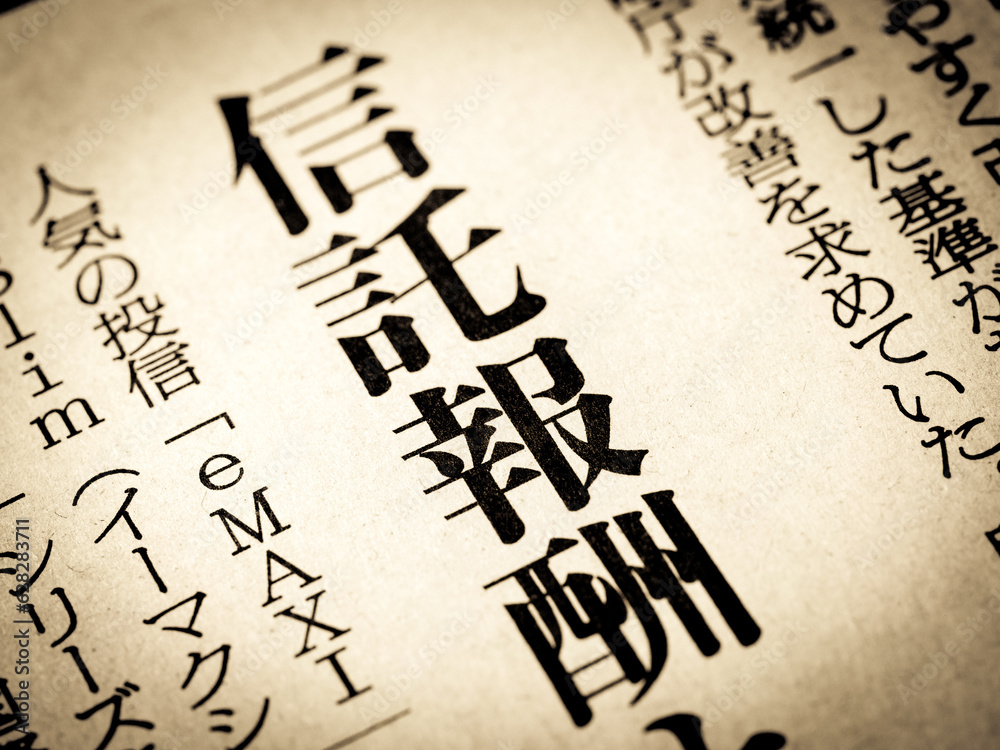 やすく
統一した基準が
庁が改善を求めていた
信託報酬
人気の投信「eMAXI
slim(イーマクシ
リーズ
Adobe Stock | #628283711